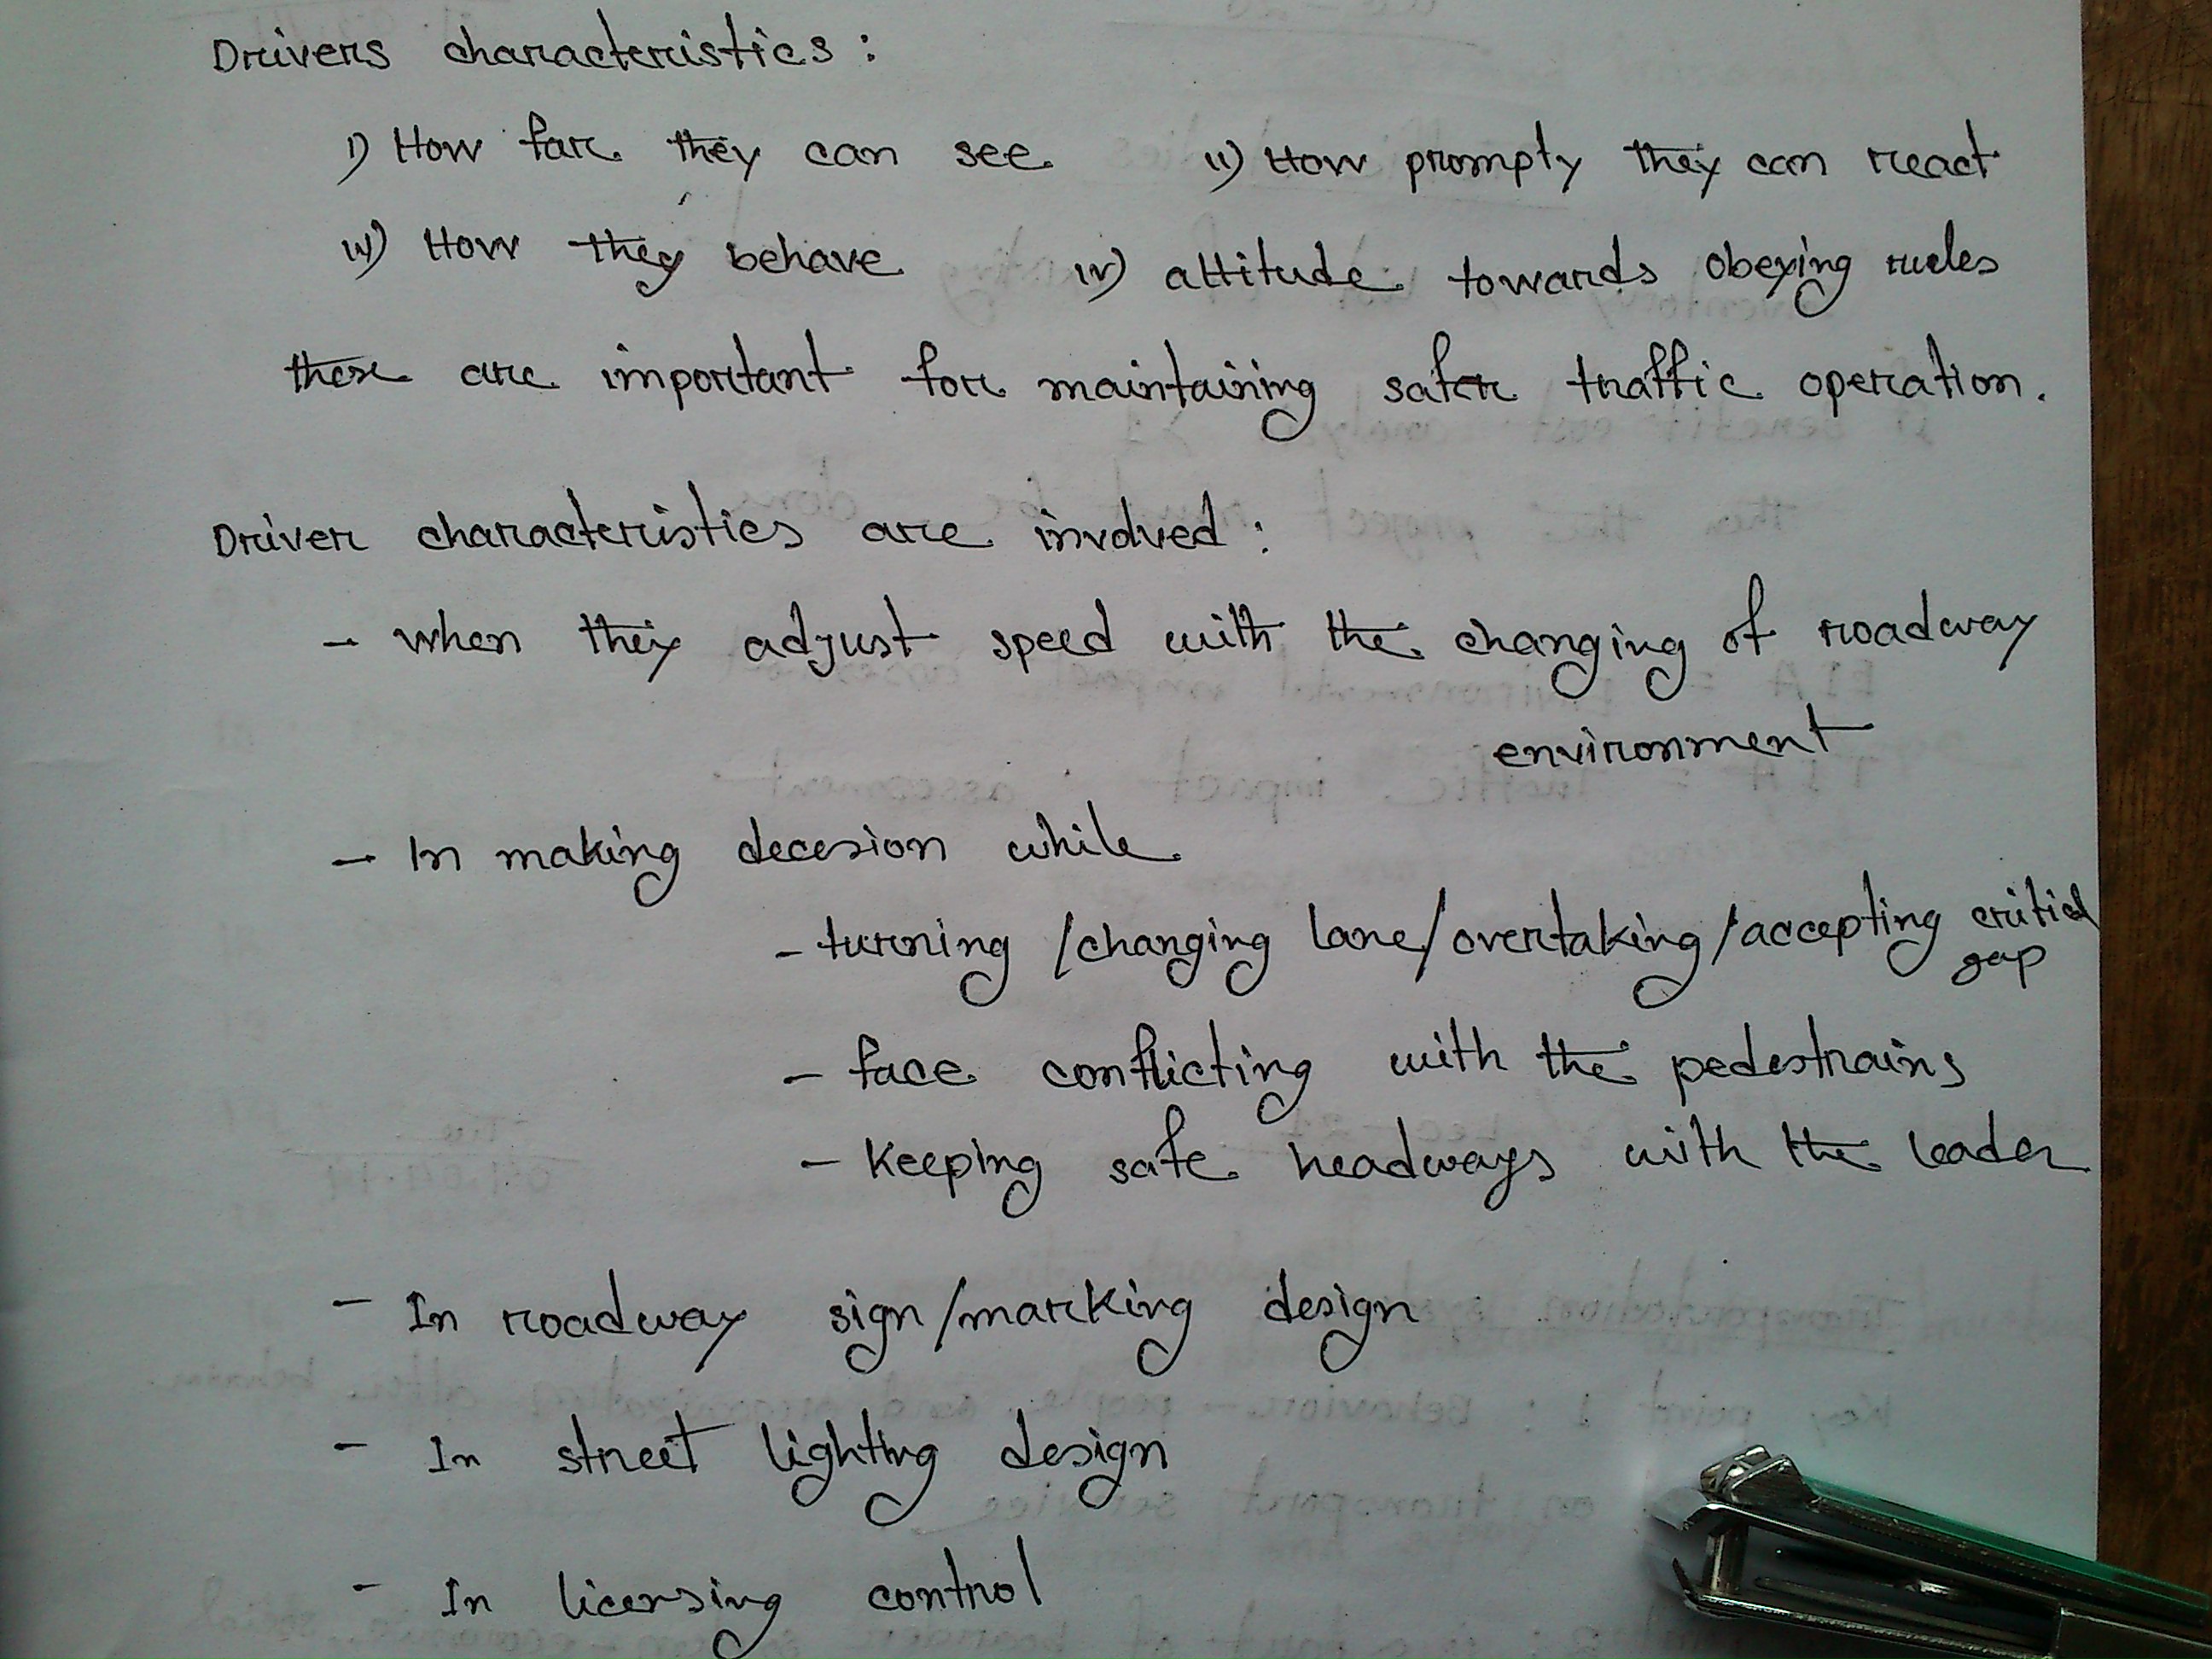 Drivers characteristics :
i) How far they can see ii) How prompty they can react
iii) How they behave iv) attitude towards obeying rules
these are important for maintaining safer traffic operation.
Driver characteristics are involved :
- when they adjust speed with the changing of roadway
environment
- In making decesion while
- turning /changing lane/overtaking/accepting critical
gap
- face conflicting with the pedestrains
- Keeping safe headways with the leader
- In roadway sign/marking design
- In street lighting design
- In licensing control